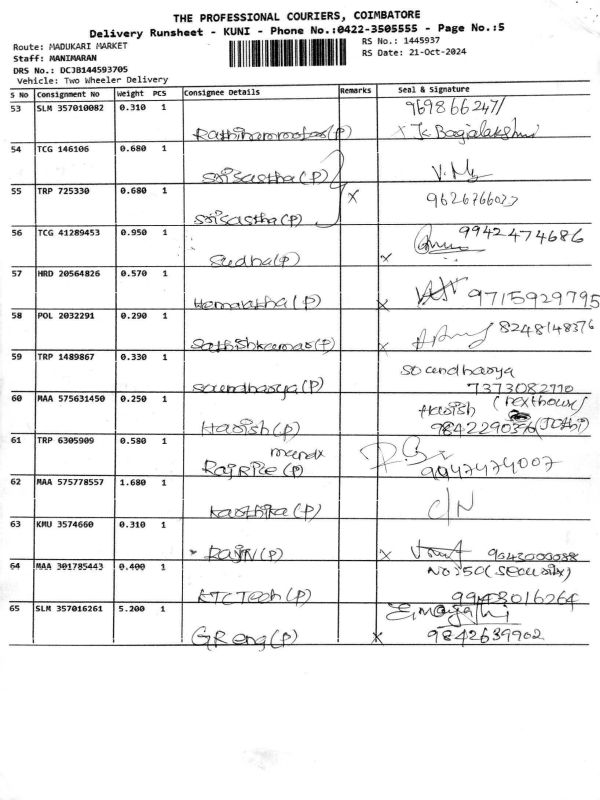 THE PROFESSIONAL COURIERS, COIMBATORE
Delivery Runsheet - KUNI - Phone No.:0422-3505555 - Page No.:5
Route: MADUKARI MARKET
RS No.: 1445937
Staff: MANIMARAN
RS Date: 21-Oct-2024
DRS No.: DCJB144593705
Vehicle: Two Wheeler Delivery
S No Consignment No Weight PCS Consignee Details Remarks Seal & Signature
53 SLM 357010082 0.310 1
(P)
54 TCG 146106 0.680 1
Srisastha(P)
55 TRP 725330 0.680 1
x
Srisastha(P)
56 TCG 41289453 0.950 1 9942474686
Sudha(P) x
57 HRD 20564826 0.570 1
Hemalatha(P) x 9715929795
58 POL 2032291 0.290 1 8248148376
Sathishkumar(P) x
59 TRP 1489867 0.330 1 Soundharya
Soundharya(P)
60 MAA 575631450 0.250 1 Harish
Harish(P) (Jothi)
61 TRP 6305909 0.580 1
(P) 9947474007
62 MAA 575778557 1.680 1
Karthika(P) C/N
63 KMU 3574660 0.310 1
RAJIV(P) x
64 MAA 301785443 0.400 1 No:50(Security)
KTC Tech(P) 9943016264
65 SLM 357016261 5.200 1
GR eng(P) x 9842639902